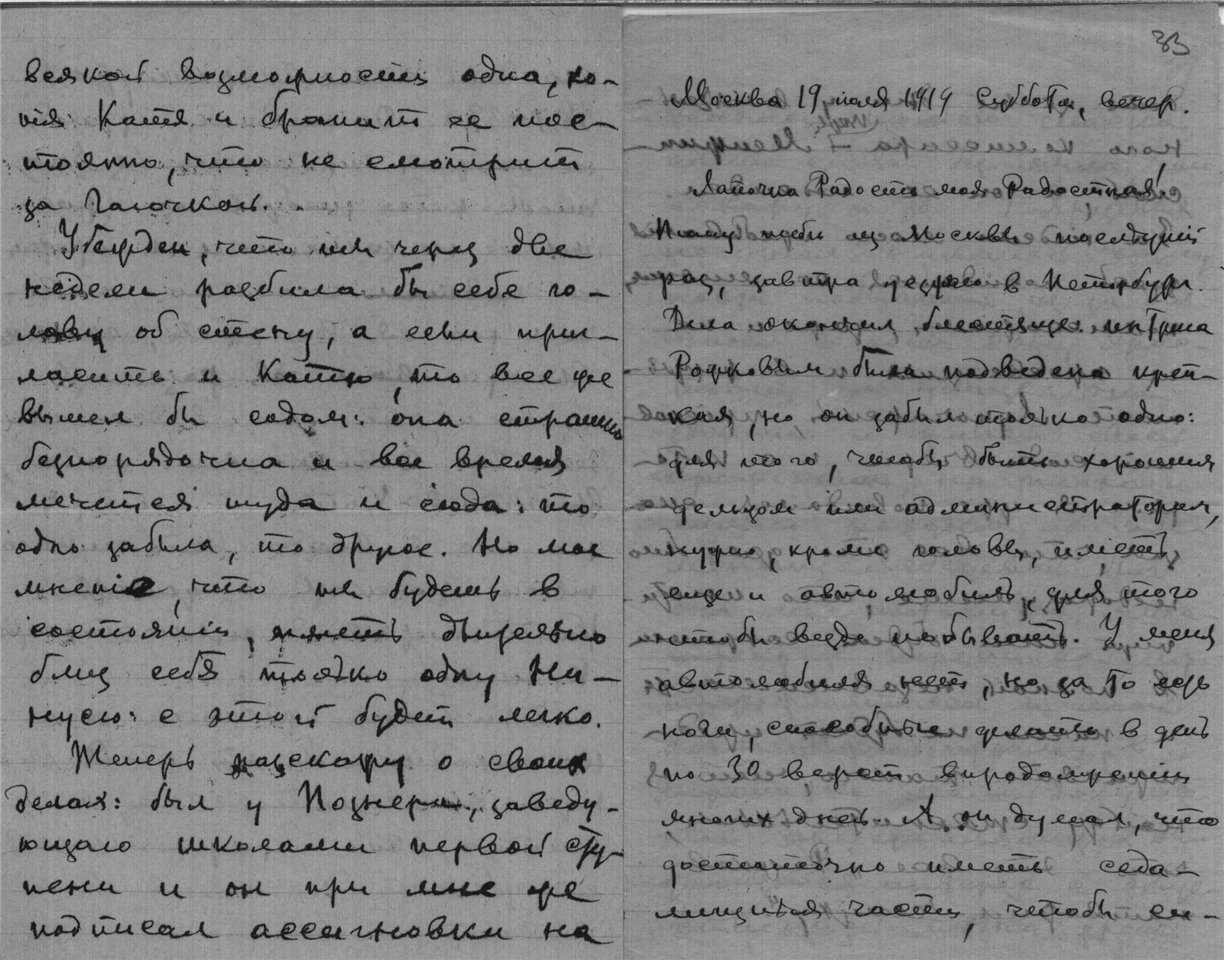 всякой возможности одна, хо-
тя Катя и бранит ее пос-
тоянно, что не смотрит
за Галочкой.
Убежден, что ты через две
недели разбила бы себе го-
лову об стену, а если приг-
ласить и Катю, то все же
вышел бы содом: она страшно
безпорядочна и все время
мечется туда и сюда: то
одно забыла, то другое. Но мое
мнение, что ты будешь в
состоянии, иметь
близ себя только одну Ни-
нусю: с этой будет легко.
Теперь разскажу о своих
делах: был у Познера, заведу-
ющаго школами первой сту-
пени и он при мне же
подписал ассигновки на
33
Москва 19 июля 1919 Суббота, вечер.
Лапочка Радость моя Радостная!
Пишу тебе из Москвы последний
раз, завтра уезжаю в Петербург.
Дела окончил блестяще. интрига
Рожковым была подведена креп-
кая, но он забыл только одно:
для того, чтобы быть хорошим
дельцом или администратором,
нужно, кроме головы, иметь
еще и автомобиль, для того
чтобы везде побывать. У меня
автомобиля нет, но за то есть
ноги, способные делать в день
по 30 верст в продолжении
многих дней. А он думал, что
достаточно иметь седа-
лищныя части, чтобы си-